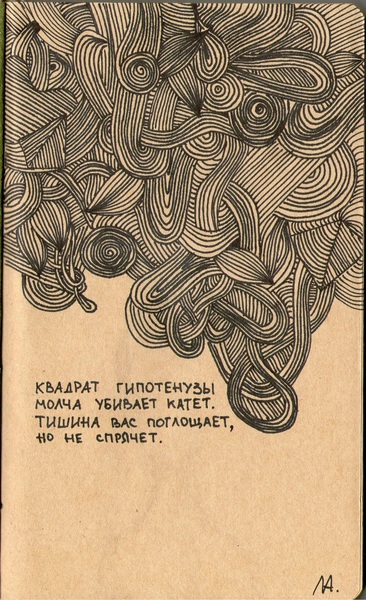 КВАДРАТ ГИПОТЕНУЗЫ
МОЛЧА УБИВАЕТ КАТЕТ.
ТИШИНА ВАС ПОГЛОЩАЕТ,
НО НЕ СПРЯЧЕТ.